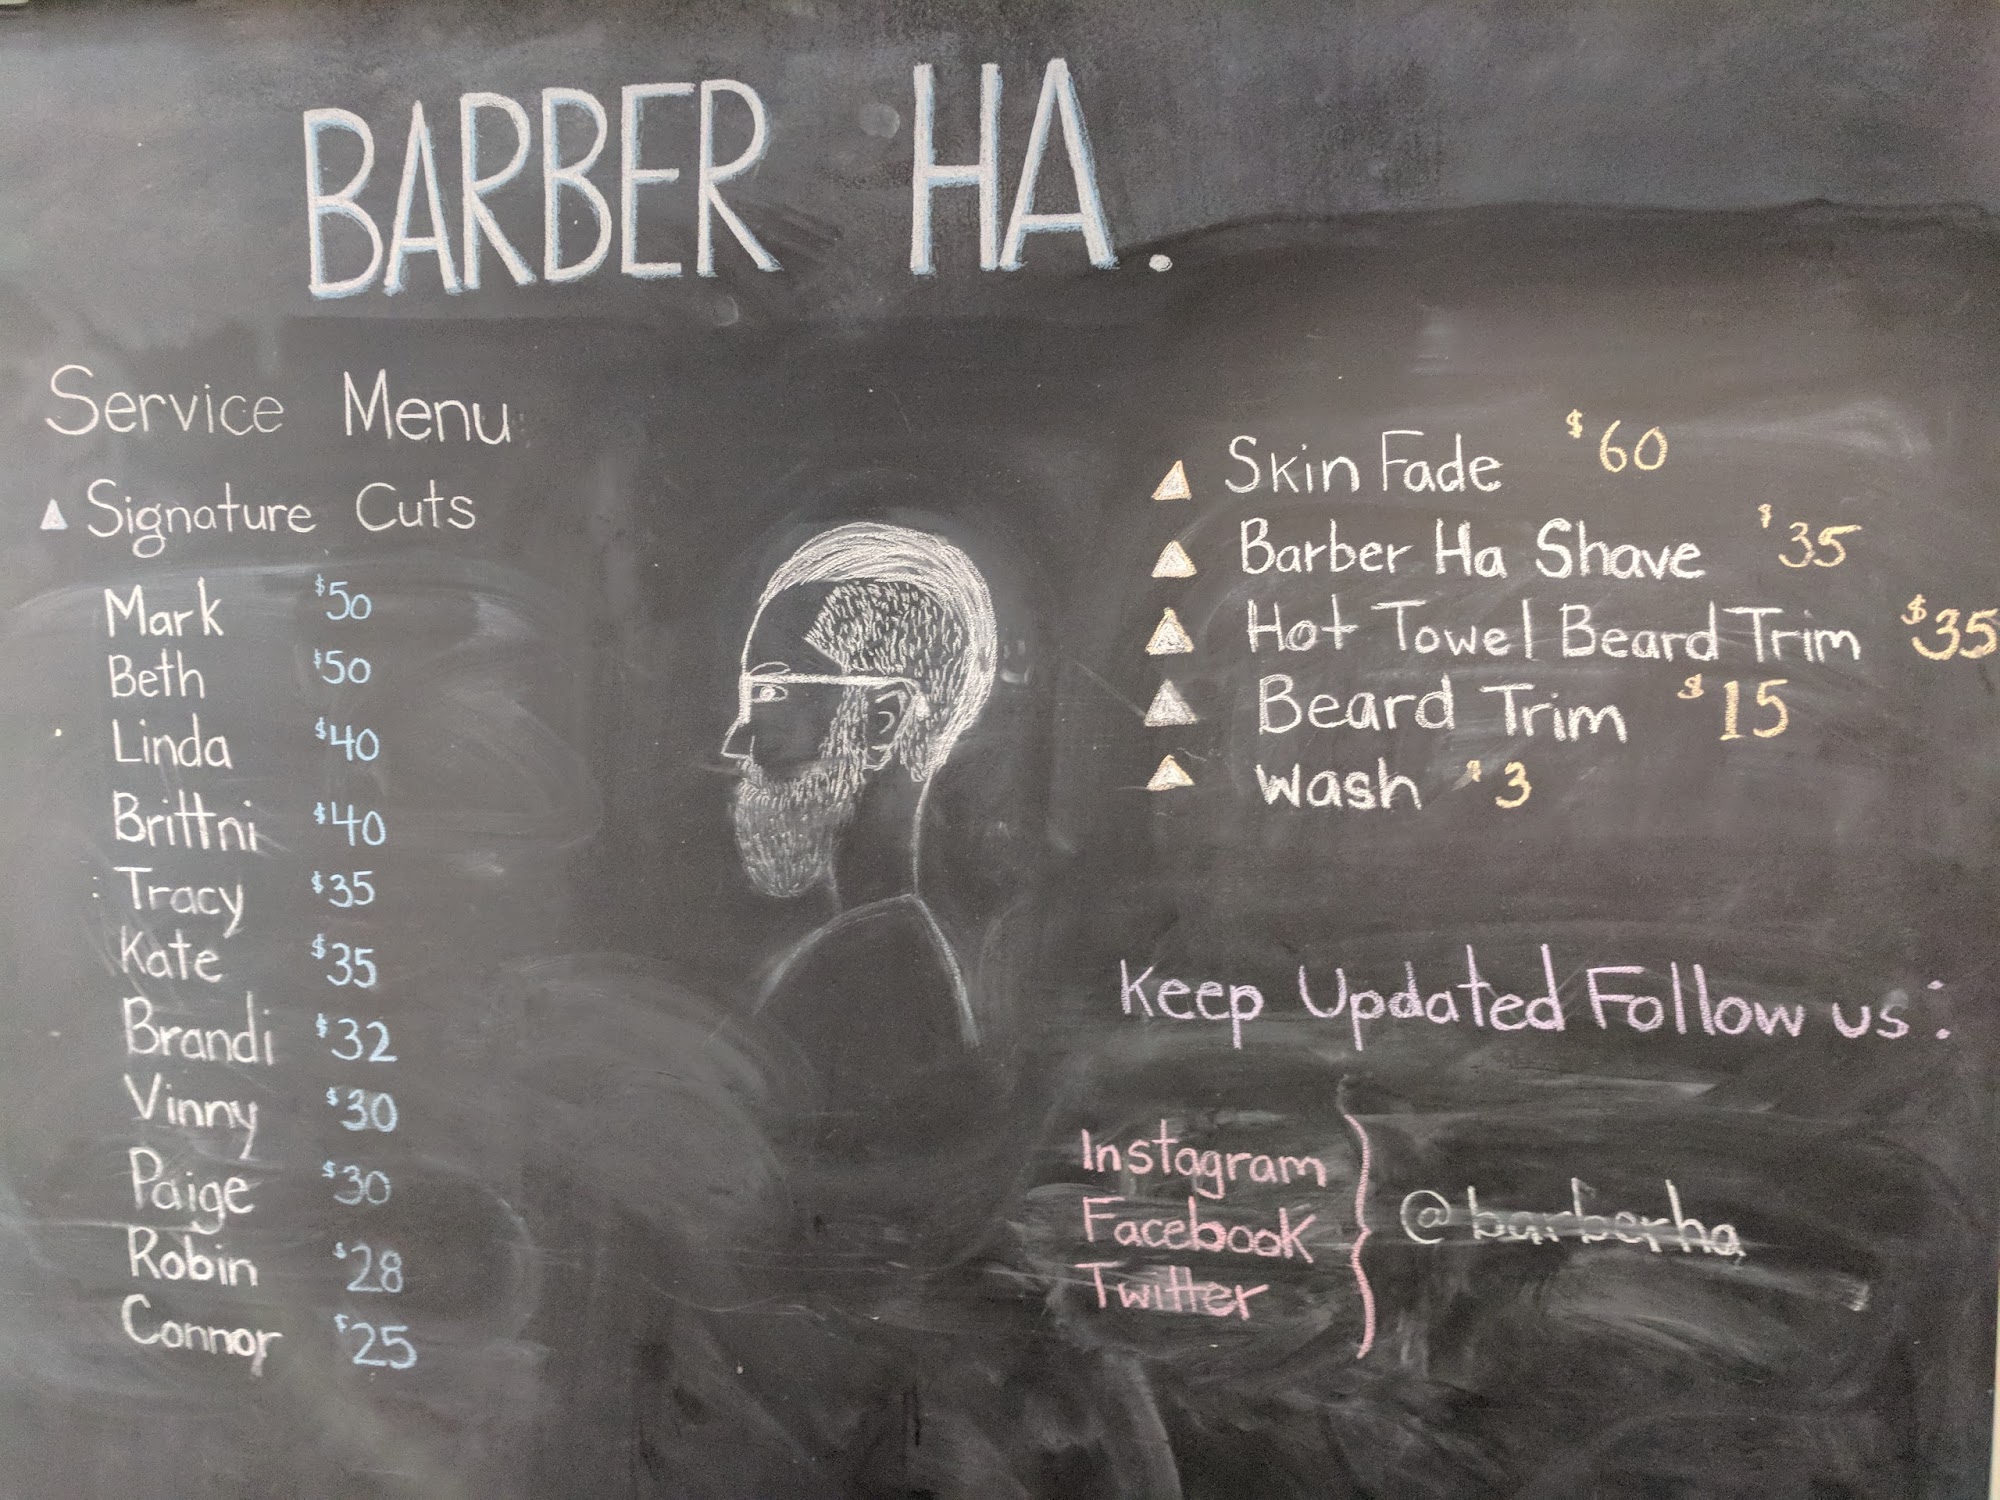 BARBER HA.
Service Menu
▲ Signature Cuts
Mark $50
Beth $50
Linda $40
Brittni $40
Tracy $35
Kate $35
Brandi $32
Vinny $30
Paige $30
Robin $28
Connor $25
▲ Skin Fade $60
▲ Barber Ha Shave $35
▲ Hot Towel Beard Trim $35
▲ Beard Trim $15
▲ Wash $3
Keep Updated Follow us:
Instagram
Facebook
Twitter
@barberha